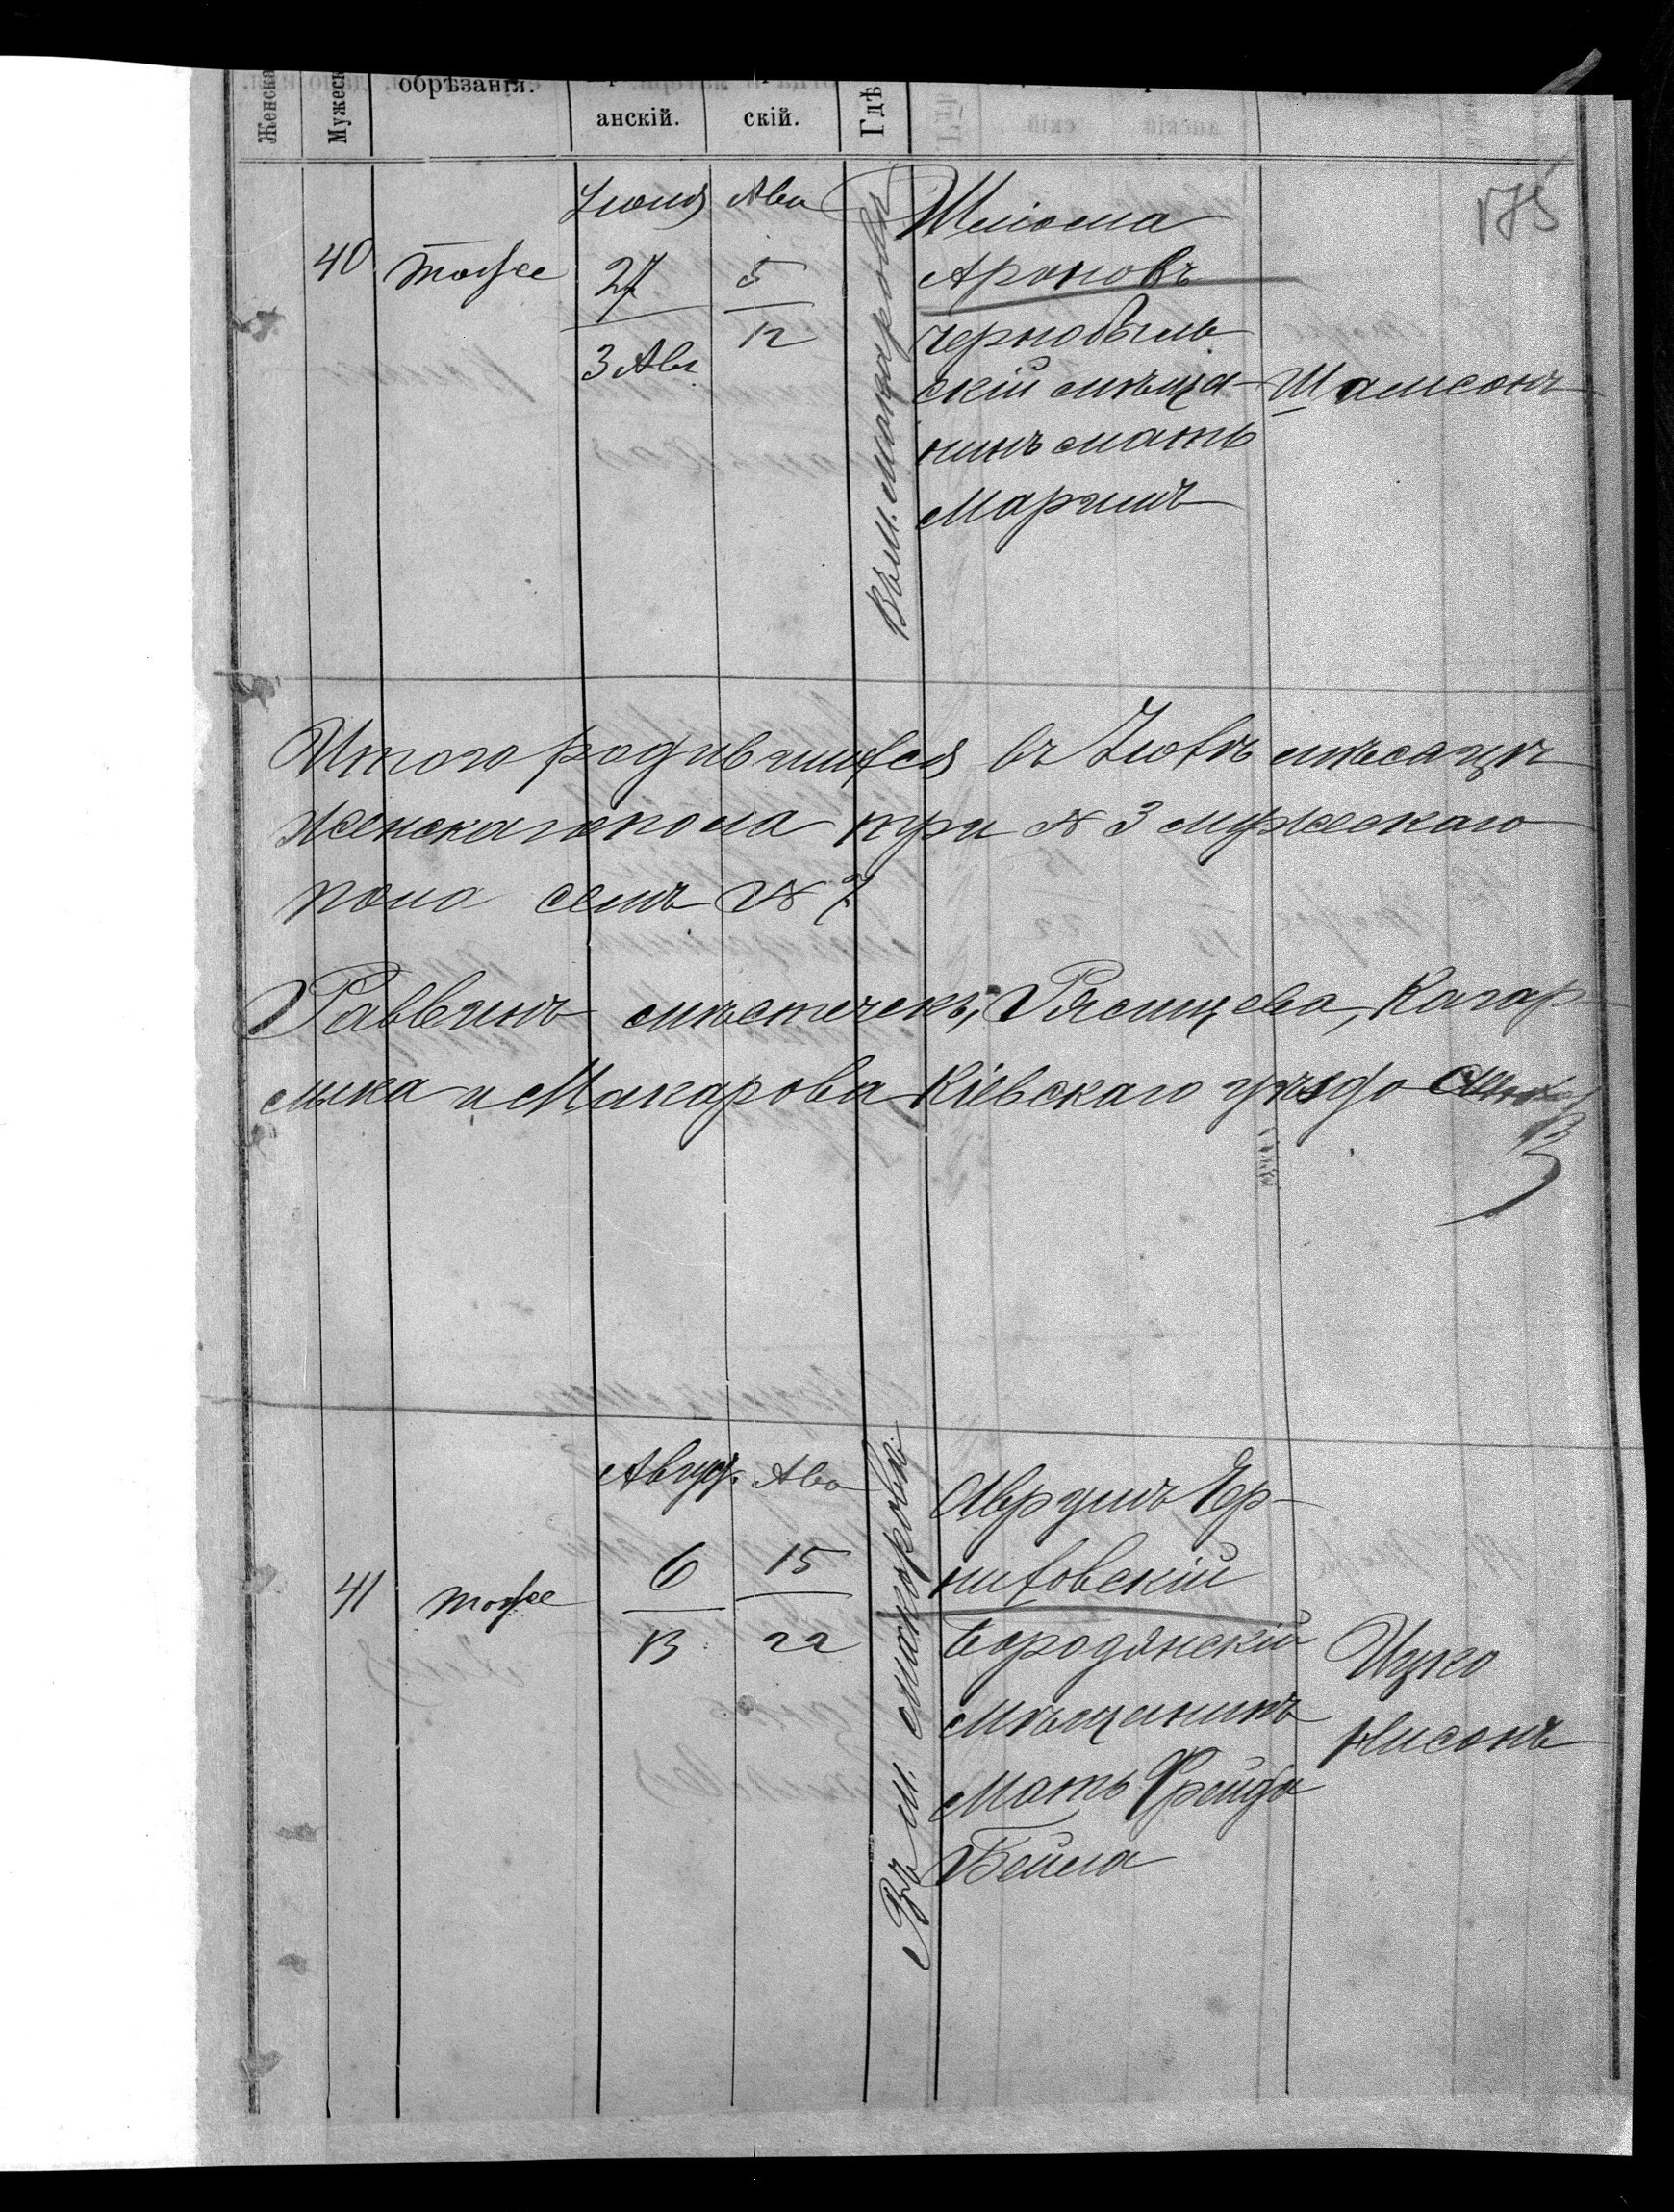 Женска
Мужеск
обрѣзанія.
анскій.
скій.
Гдѣ
175
Іюля Ава
40 тоже 27 5
3 Авг 12
Въ м. Макаровѣ
Шліома
Ароновъ
чернобыль
скій мѣща-
нинъ мать
Маріимъ
Шамсонъ
Итого родившихся въ Іюлѣ мѣсяцѣ
женскаго пола три № 3 мужескаго
пола семь № 7
Раввинъ мѣстечекъ, Рясищева, Кагар
лыка и Макарова Кіевскаго уѣзда
Авгус. Ава
41 тоже 6 15
13 22
Въ м. Макаровѣ
Аврумъ Ер-
Бородянскій
мѣщанинъ
Мать Фрейда
Бейла
Ицко
Нисонъ